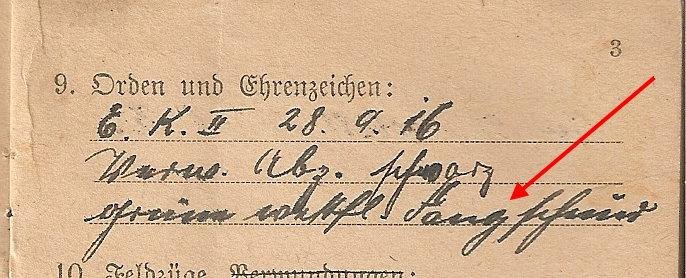 3
9. Orden und Ehrenzeichen:
E. K. II 28. 9. 16
Verw. Abz. schwarz
grüne westf. Fangschnur
10. Feldzüge, Verwundungen: